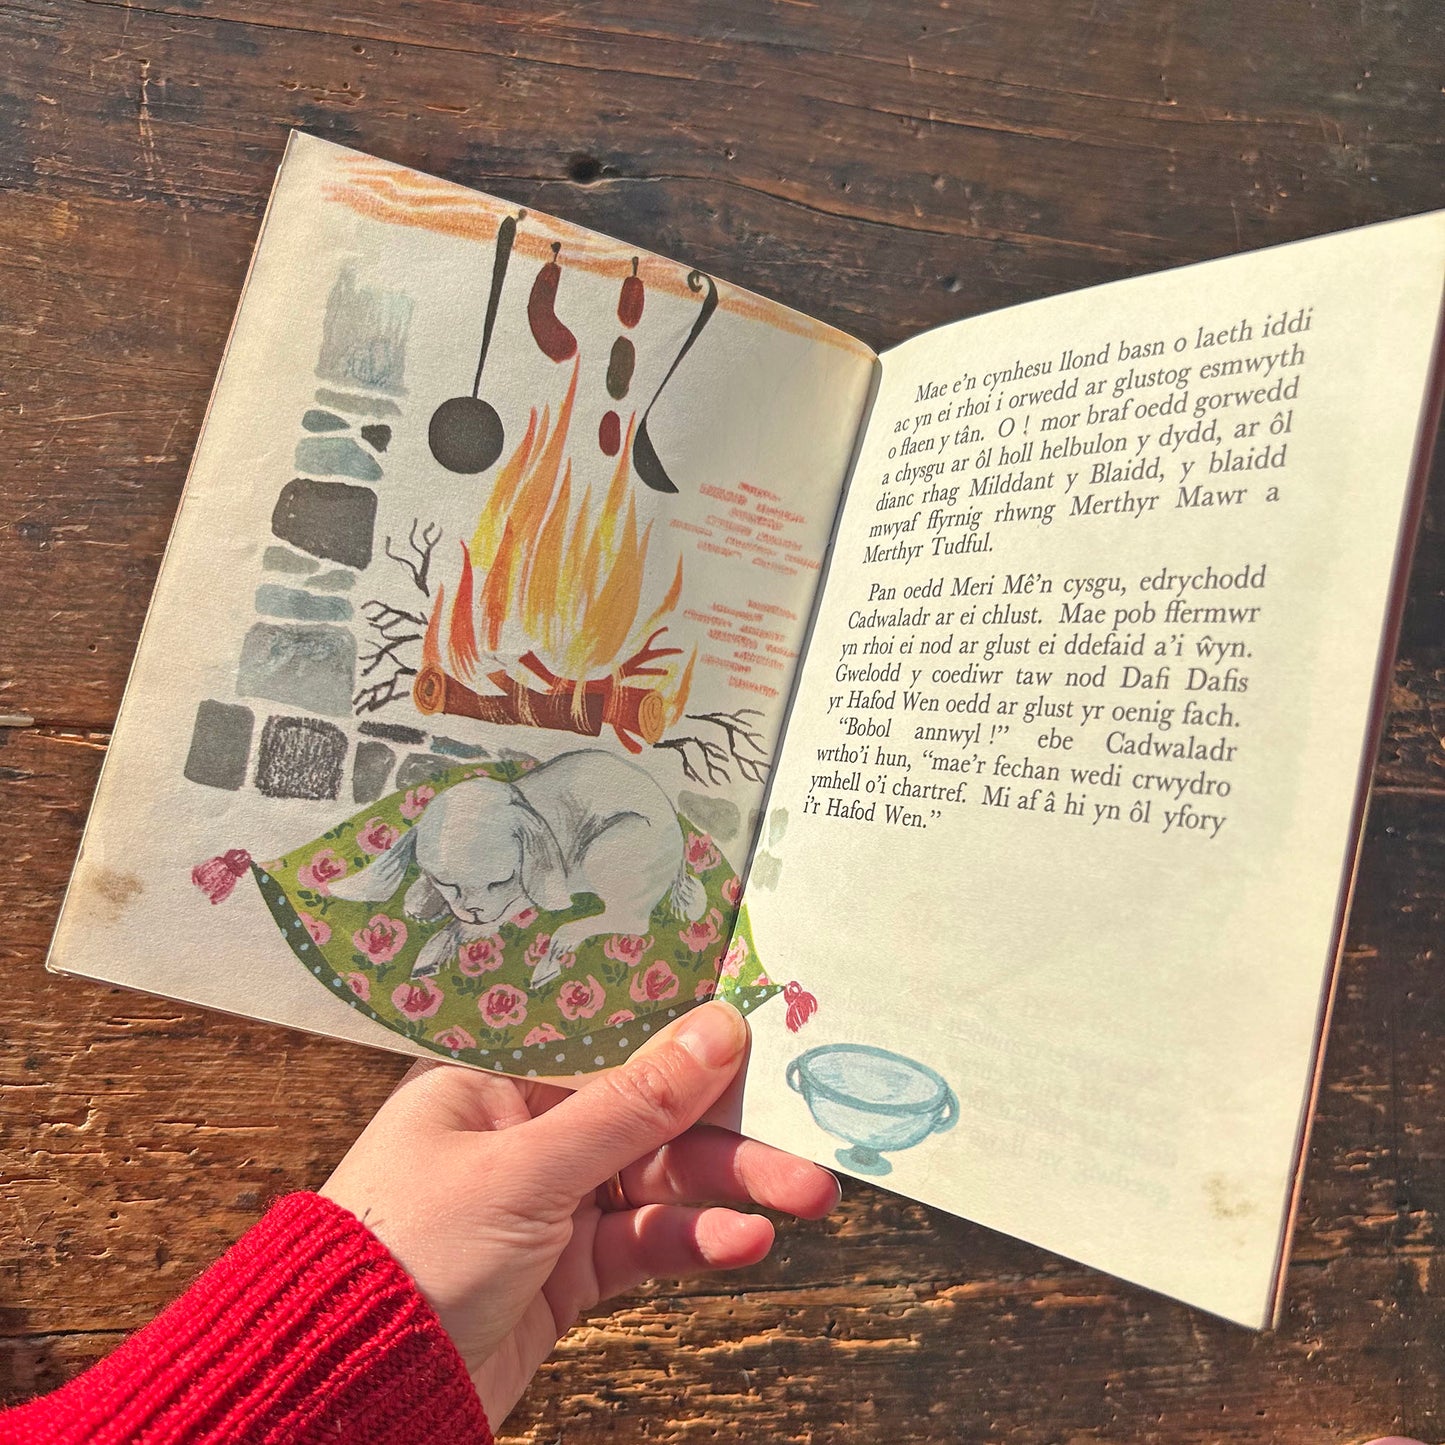 Mae e'n cynhesu llond basn o laeth iddi
ac yn ei rhoi i orwedd ar glustog esmwyth
o flaen y tân. O ! mor braf oedd gorwedd
a chysgu ar ôl holl helbulon y dydd, ar ôl
dianc rhag Milddant y Blaidd, y blaidd
mwyaf ffyrnig rhwng Merthyr Mawr a
Merthyr Tudful.
Pan oedd Meri Mê'n cysgu, edrychodd
Cadwaladr ar ei chlust. Mae pob ffermwr
yn rhoi ei nod ar glust ei ddefaid a'i ŵyn.
Gwelodd y coediwr taw nod Dafi Dafis
yr Hafod Wen oedd ar glust yr oenig fach.
"Bobol annwyl !" ebe Cadwaladr
wrtho'i hun, "mae'r fechan wedi crwydro
ymhell o'i chartref. Mi af â hi yn ôl yfory
i'r Hafod Wen."